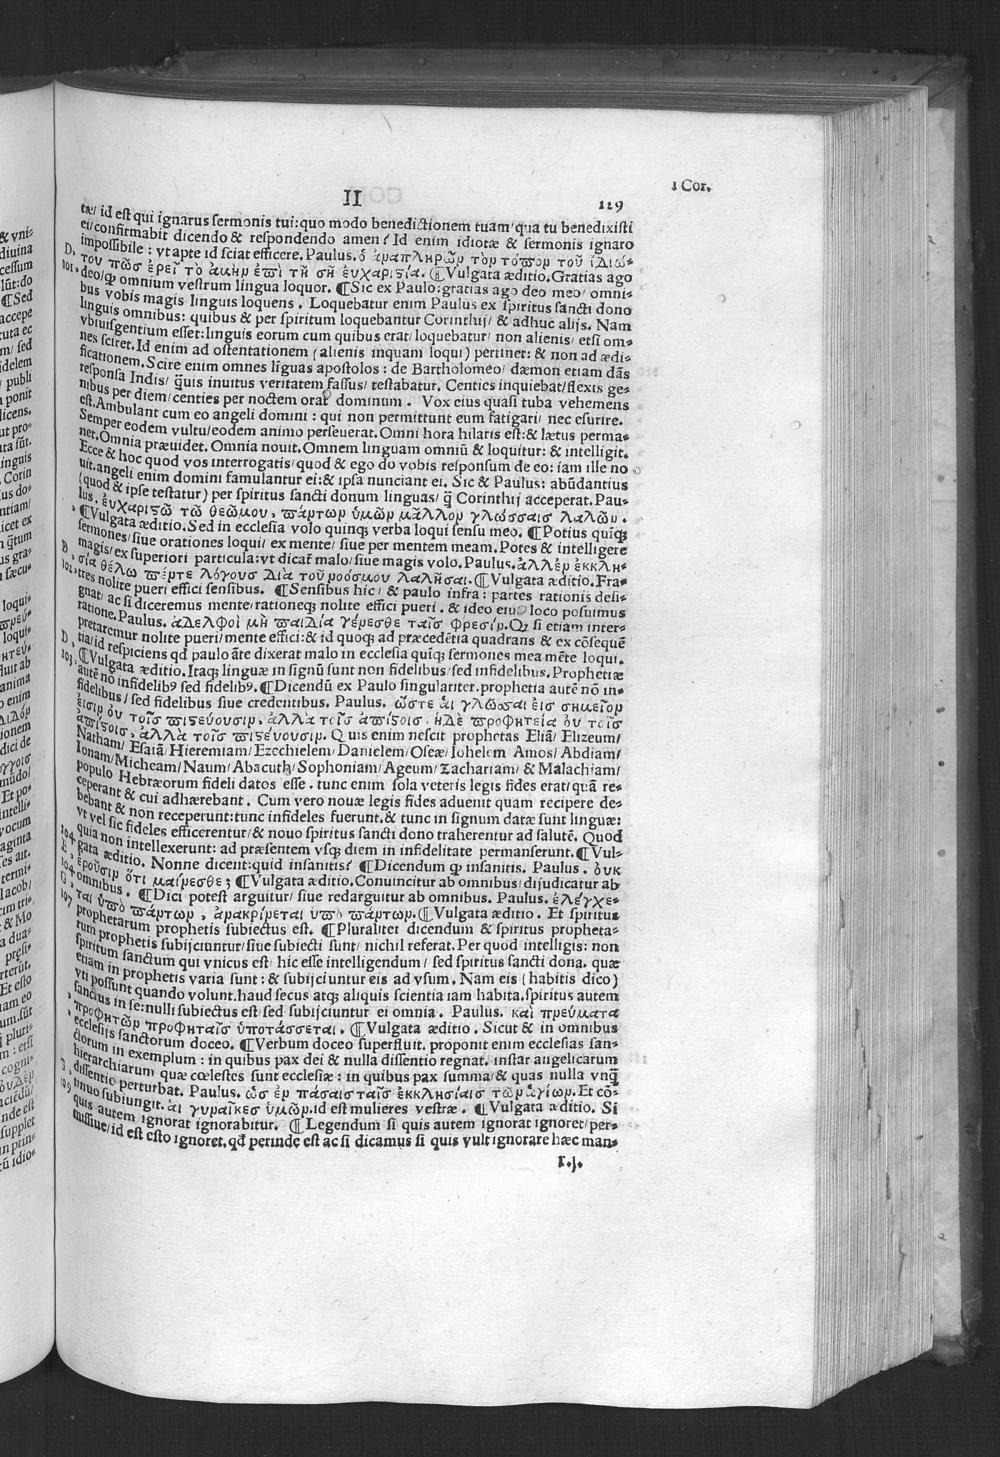 II
1 Cor.
129
tæ/ id est qui ignarus sermonis tui: quo modo benedictionem tuam/ qua tu benedixisti
ei/ confirmabit dicendo & respondendo amen? Id enim idiotæ & sermonis ignaro
impossibile: vt apte id sciat efficere. Paulus. ὁ ἀναπληρῶν τὸν τόπον τοῦ ἰδιώ-
D, του πῶσ ἐρεῖ τὸ ἀμὴν ἐπὶ τῇ σῇ ευχαριστία. ¶Vulgata æditio. Gratias ago
101. deo/ ꝙ omnium vestrum lingua loquor. ¶Sic ex Paulo: gratias ago deo meo/ omni-
bus vobis magis linguis loquens. Loquebatur enim Paulus ex spiritus sancti dono
linguis omnibus: quibus & per spiritum loquebantur Corinthij/ & adhuc alijs. Nam
vbiuisgentium esset: linguis eorum cum quibus erat/ loquebatur/ non alienis/ etsi om-
nes sciret. Id enim ad ostentationem (alienis inquam loqui) pertinet: & non ad ædi-
ficationem. Scire enim omnes liguas apostolos: de Bartholomeo/ dæmon etiam dãs
responsa Indis/ q̃uis inuitus veritatem fassus/ testabatur. Centies inquiebat/ flexis ge-
nibus per diem/ centies per noctem orat dominum. Vox eius quasi tuba vehemens
est. Ambulant cum eo angeli domini: qui non permittunt eum fatigari/ nec esurire.
Semper eodem vultu/ eodem animo perseuerat. Omni hora hilaris est: & lætus perma-
net. Omnia præuidet. Omnia nouit. Omnem linguam omniũ & loquitur: & intelligit.
Ecce & hoc quod vos interrogatis/ quod & ego do vobis responsum de eo: iam ille no
uit. angeli enim domini famulantur ei: & ipsa nunciant ei. Sic & Paulus: abũdantius
(quod & ipse testatur) per spiritus sancti donum linguas/ q̃ Corinthij acceperat. Pau-
lus. ἐυχαριστῶ τῶ θεῶμου, πάντων ὑμῶν μᾶλλον γλώσσαισ λαλῶν.
, ¶Vulgata æditio. Sed in ecclesia volo quinqȝ verba loqui sensu meo. ¶Potius quĩqȝ
sermones/ siue orationes loqui/ ex mente/ siue per mentem meam. Potes & intelligere
B, magis/ ex superiori particula: vt dicat malo/ siue magis volo. Paulus. ἀλλὲν ἐκκλη-
, σία θέλω πέντε λόγουσ διὰ τοῦ νοόσμου λαλῆσαι. ¶Vulgata æditio. Fra-
102, tres nolite pueri effici sensibus. ¶Sensibus hic/ & paulo infra: partes rationis desi-
gnat/ ac si diceremus mente/ rationeqȝ nolite effici pueri. & ideo eius loco posuimus
ratione. Paulus. ἀδελφοὶ μὴ παιδία γένεσθε ταῖσ φρεσίν. Qȝ si etiam inter-
pretaremur nolite pueri/ mente effici: & id quoqȝ ad præcedẽtia quadrans & ex cõsequẽ
D, tia/ id respiciens qd̃ paulo ãte dixerat malo in ecclesia quĩqȝ sermones mea mẽte loqui.
103, ¶Vulgata æditio. Itaqȝ linguæ in signũ sunt non fidelibus/ sed infidelibus. Prophetiæ
autẽ no infidelibꝰ sed fidelibꝰ. ¶Dicendũ ex Paulo singulariter. prophetia autẽ nõ in-
fidelibus/ sed fidelibus siue credentibus. Paulus. ὥστε ἁι γλῶσσαι ἐισ σημεῖον
ἐισὶν ὀυ τοῖσ πιστέυουσιν, ἀλλὰ τοῖσ ἀπίστοισ. ἡδὲ προφητεία ὀυ τοῖσ
ἀπίστοισ, ἀλλὰ τοῖσ πιστέυουσιν. Quis enim nescit prophetas Eliã/ Elizeum/
Natham/ Esaiã/ Hieremiam/ Ezechielem/ Danielem/ Oseæ/ Iohelem Amos/ Abdiam/
Ionam/ Micheam/ Naum/ Abacuth/ Sophoniam/ Ageum/ Zachariam/ & Malachiam/
populo Hebræorum fideli datos esse. tunc enim sola veteris legis fides erat/ quã re-
ceperant & cui adhærebant. Cum vero nouæ legis fides aduenit quam recipere de-
bebant & non receperunt: tunc infideles fuerunt, & tunc in signum datæ sunt linguæ:
vt vel sic fideles efficerentur/ & nouo spiritus sancti dono traherentur ad salutẽ. Quod
104, quia non intellexerunt: ad præsentem vsqȝ diem in infidelitate permanserunt. ¶Vul-
E, gata æditio. Nonne dicent: quid insanitis? ¶Dicendum ꝙ insanitis. Paulus. ὀυκ
, ἐροῦσιν ὅτι μαίνεσθε; ¶Vulgata æditio. Conuincitur ab omnibus/ dijudicatur ab
104, omnibus. ¶Dici potest arguitur/ siue redarguitur ab omnibus. Paulus. ἐλέγχε-
G, ται ὑπὸ πάντων, ἀνακρίνεται υπὸ πάντων. ¶Vulgata æditio. Et spiritus
107 prophetarum prophetis subiectus est. ¶Pluraliter dicendum & spiritus propheta-
rum prophetis subijciuntur/ siue subiecti sunt/ nichil referat. Per quod intelligis: non
spiritum sanctum qui vnicus est/ hic esse intelligendum/ sed spiritus sancti dona. quæ
etiam in prophetis varia sunt: & subijciuntur eis ad vsum. Nam eis (habitis dico)
vti possunt quando volunt. haud secus atqȝ aliquis scientia iam habita. spiritus autem
sanctus in se: nulli subiectus est/ sed subijciuntur ei omnia. Paulus. καὶ πνεύματα
, προφητῶν προφηταῖσ ὑποτάσσεται. ¶Vulgata æditio. Sicut & in omnibus
, ecclesijs sanctorum doceo. ¶Verbum doceo superfluit. proponit enim ecclesias san-
ctorum in exemplum: in quibus pax dei & nulla dissentio regnat. instar angelicarum
hierarchiarum quæ cœlestes sunt ecclesiæ: in quibus pax summa/ & quas nulla vnq̃
, dissentio perturbat. Paulus. ὡσ ἐν πάσαισ ταῖσ ἐκκλησίαισ τῶν ἁγίων. Et cõ-
109, tinuo subiungit. ἁι γυναῖκεσ ὑμῶν. id est mulieres vestræ. ¶Vulgata æditio. Si
quis autem ignorat ignorabitur. ¶Legendum si quis autem ignorat ignoret/ per-
missiue/ id est esto ignoret, qd̃ perinde est ac si dicamus si quis vult ignorare hæc man-
r.j.